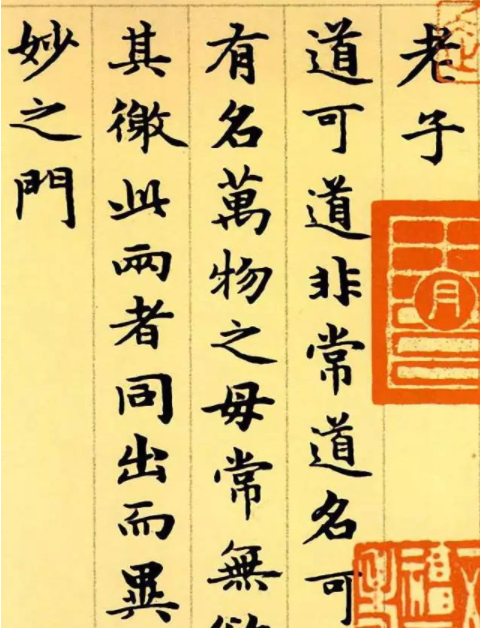 老子
道可道非常道名可
有名萬物之母常無欲
其徼此兩者同出而異
妙之門